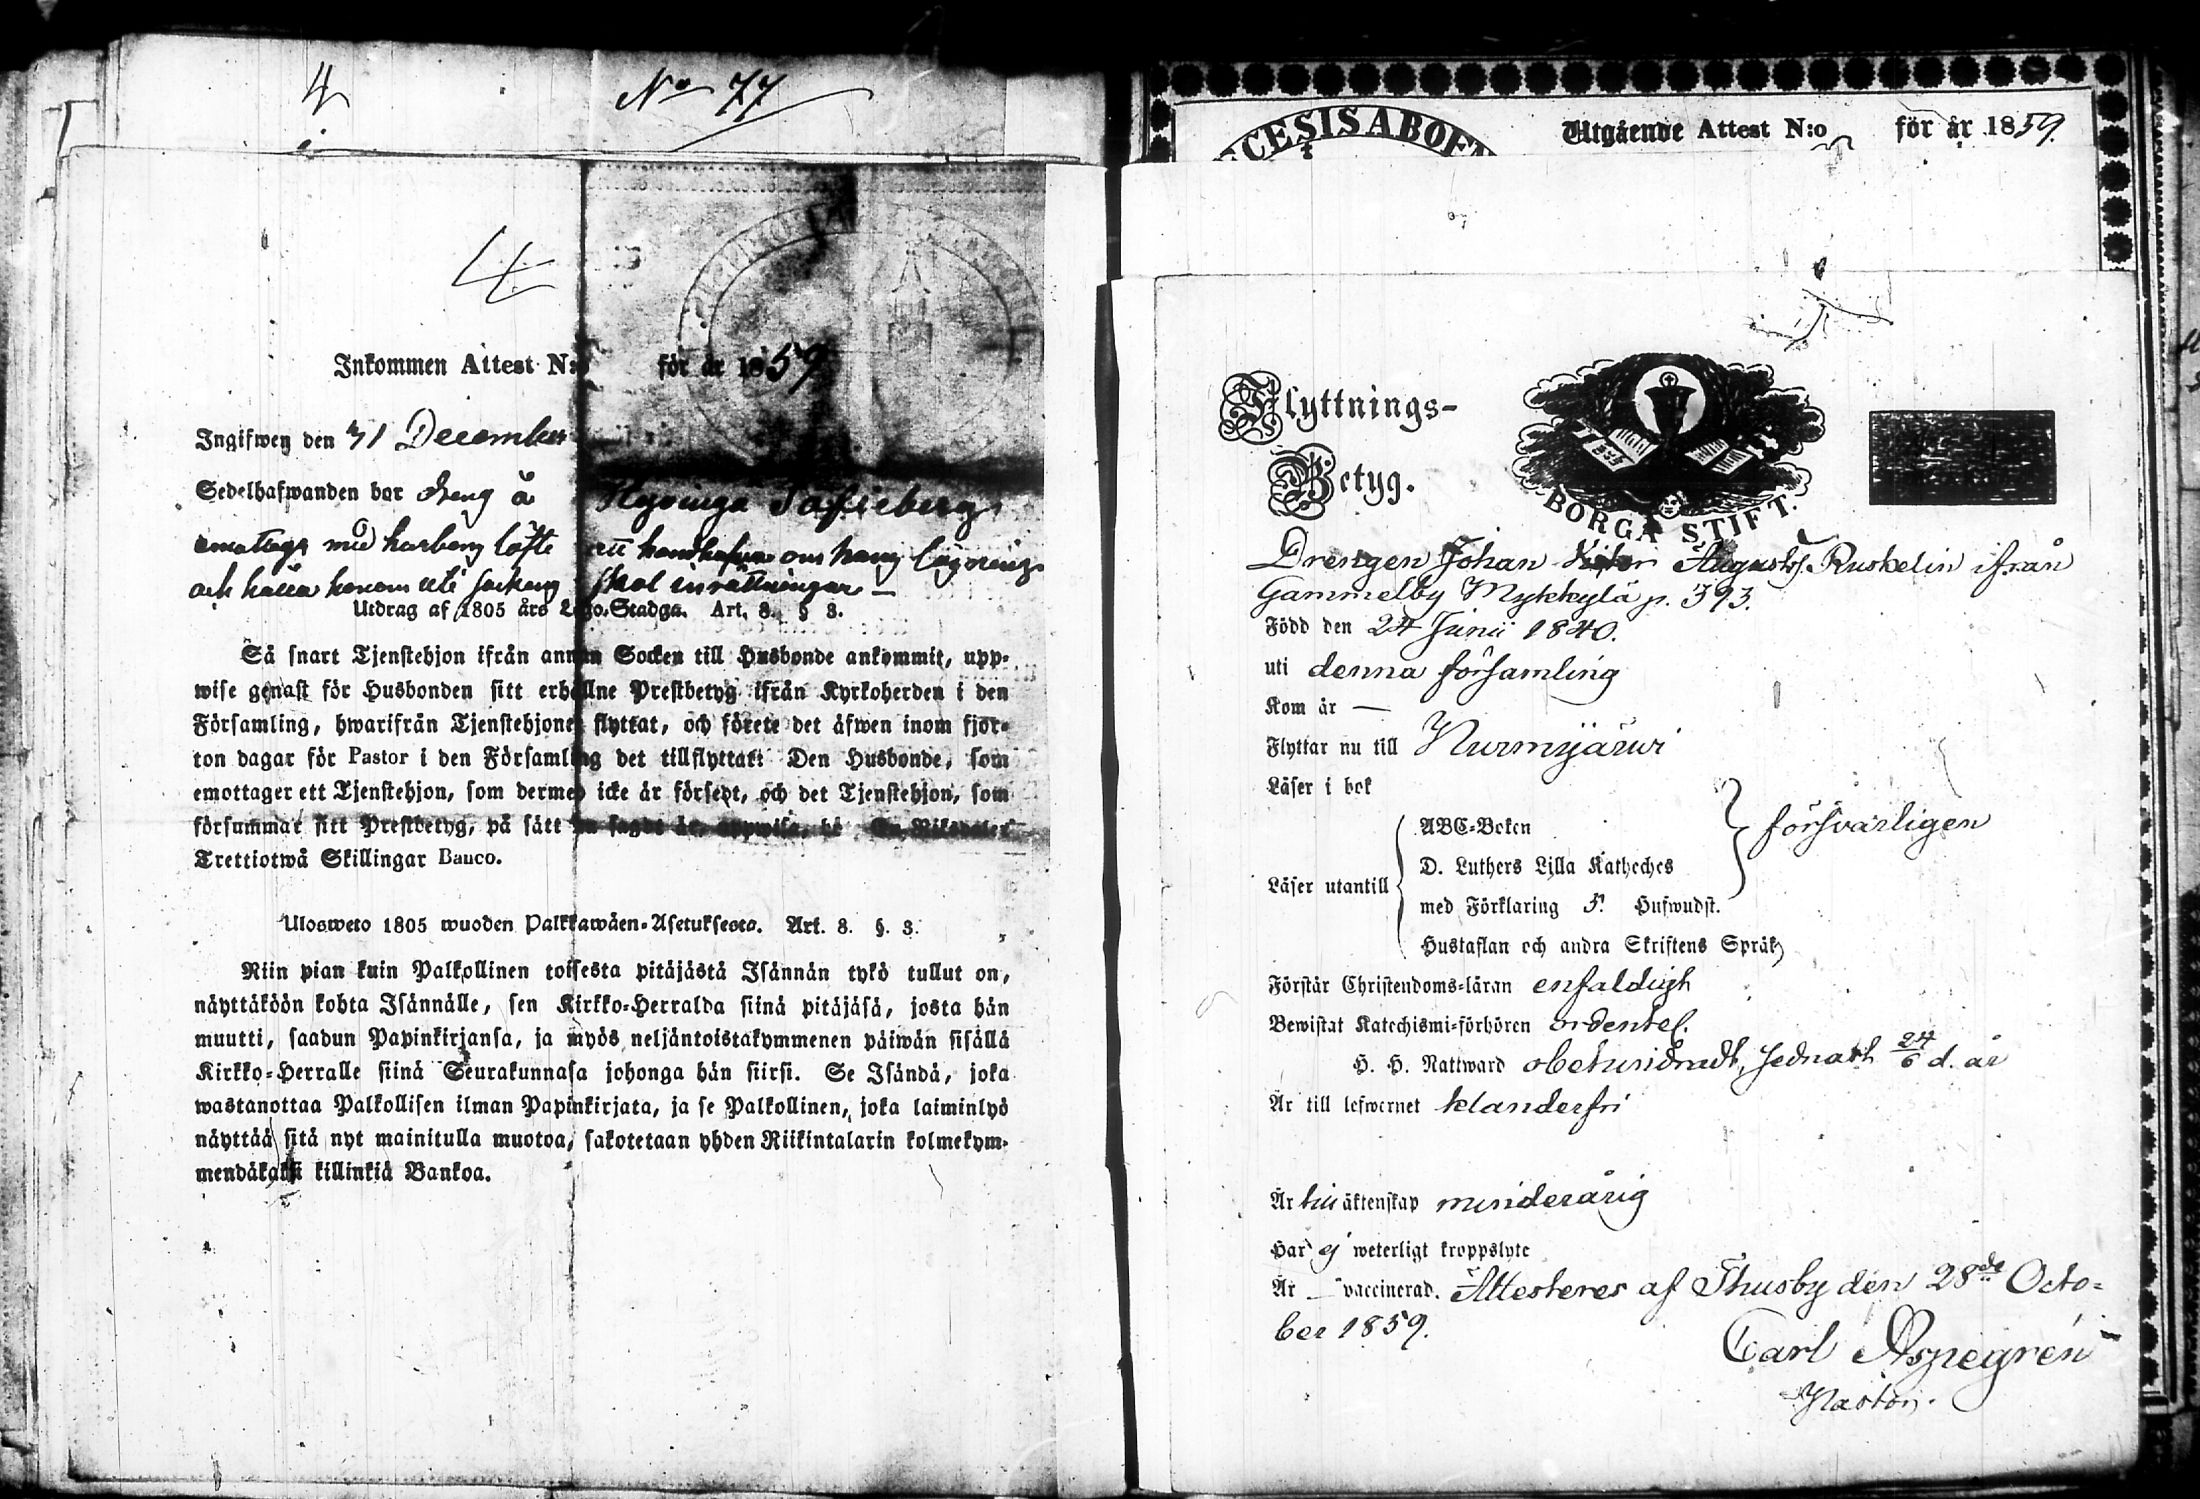 4
No 77
4
Inkommen Attest N:o för år 1859
Ingifwen den 31 December
Sedelhafwanden bor dreng å Hyvinge Sofieberg
emottags med harberg löfte att handhafva om hans lägrings
och hålla honom uti sockens skol inrättningar —
Utdrag af 1805 års Lego-Stadga. Art. 8. § 3.
Så snart Tjenstehjon ifrån annan Socken till Husbonde ankommit, upp-
wise genast för Husbonden sitt erhållne Prestbetyg ifrån Kyrkoherden i den
Församling, hwarifrån Tjenstehjonet flyttat, och förete det äfwen inom fjor-
ton dagar för Pastor i den Församling det tillflyttat: Den Husbonde, som
emottager ett Tjenstehjon, som dermed icke är försedt, och det Tjenstehjon, som
försummar sitt Prestbetyg, på sätt nu sagdt är, uppwisa, bö En Riksdaler
Trettiotwå Skillingar Banco.
Ulosweto 1805 wuoden Palkkawäen-Asetuksesta. Art. 8. §. 3.
Niin pian kuin Palkollinen toisesta pitäjästä Isännän tykö tullut on,
näyttäköön kohta Isännälle, sen Kirkko-Herralda siinä pitäjäsä, josta hän
muutti, saadun Papinkirjansa, ja myös neljäntoistakymmenen päiwän sisällä
Kirkko-Herralle siinä Seurakunnasa johonga hän siirsi. Se Isändä, joka
wastanottaa Palkollisen ilman Papinkirjata, ja se Palkollinen, joka laiminlyö
näyttää sitä nyt mainitulla muotoa, sakotetaan yhden Riikintalarin kolmekym-
mendäkaksi killinkiä Bankoa.
CESIS ABOEN
Utgående Attest N:o för år 1859.
Flyttnings-
Betyg.
BORGÅ STIFT.
Drengen Johan Viktor Augustsf. Ruskelin ifrån
Gammelby Mykkylä p. 393.
Född den 24 Junii 1840.
uti denna församling
Kom år —
Flyttar nu till Nurmijärwi
Läser i bok
Läser utantill
ABC-Boken försvarligen
D. Luthers Lilla Katheches
med Förklaring 5. Hufwudst.
Hustaflan och andra Skriftens Språk
Förstår Christendoms-läran enfaldigt
Bewistat Katechismi-förhören ordentel.
H. H. Nattward obehindradt, sednast 24/6 d. år
Är till lefwernet klanderfri
Är till äktenskap minderårig
Har ej weterligt kroppslyte
Är — vaccinerad. Attesteres af Thusby den 28de Octo-
ber 1859.
Carl Aspegrén
Pastor.